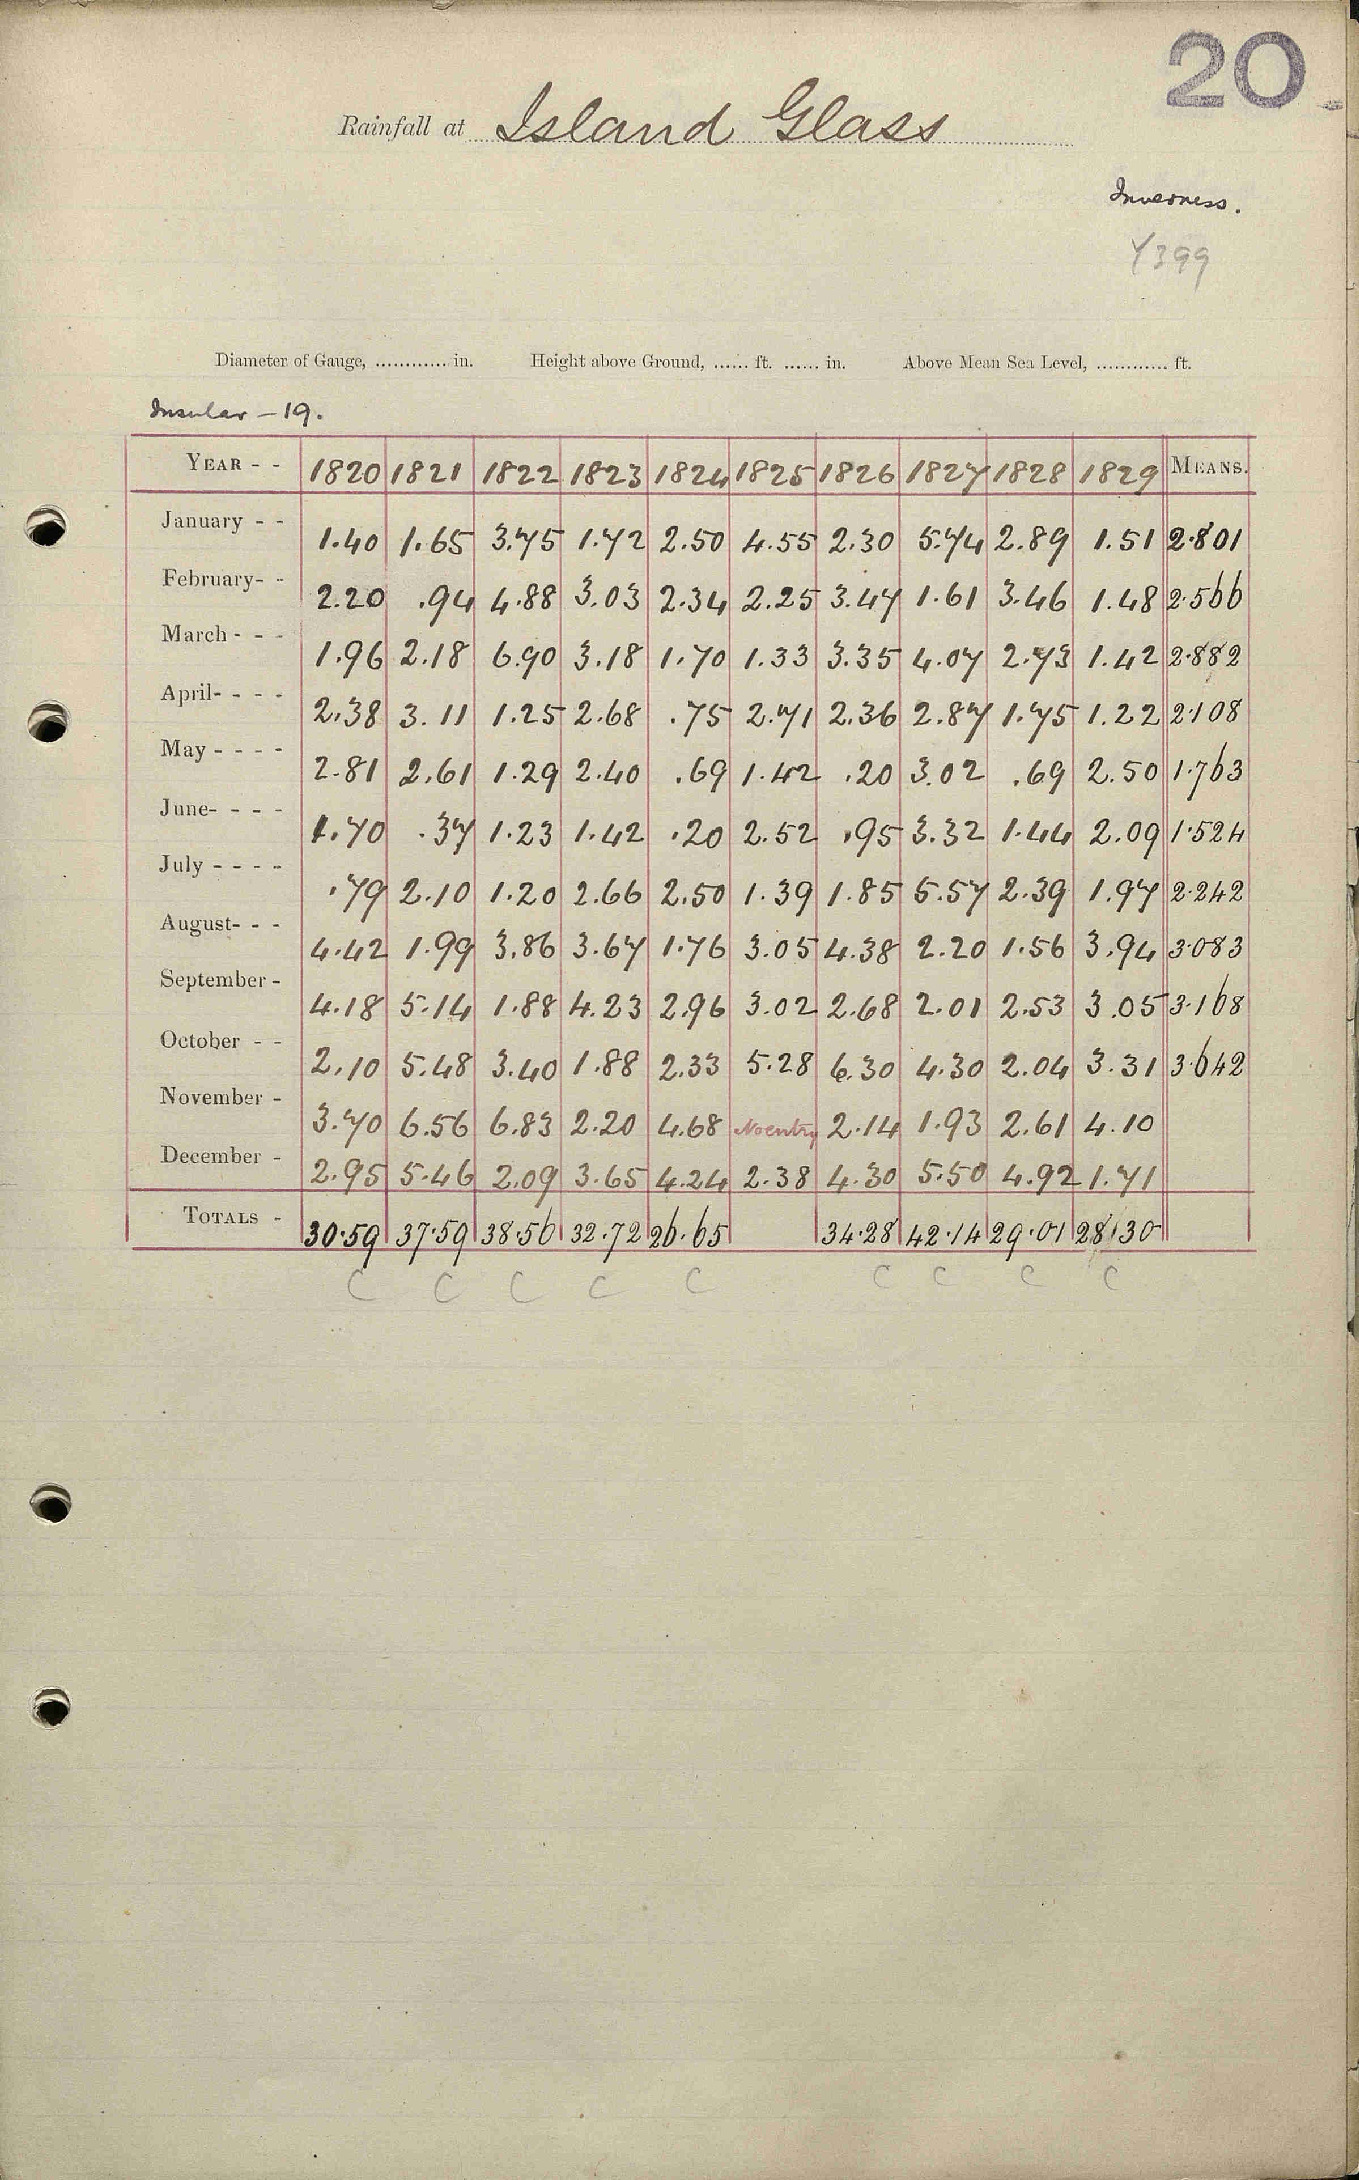 20
Rainfall at Island Glass
Inverness.
7399
Diameter of Gauge, ............ in. Height above Ground, ...... ft. ...... in. Above Mean Sea Level, ............ ft.
Insular - 19.
YEAR - - 1820 1821 1822 1823 1824 1825 1826 1827 1828 1829 MEANS.
January - - 1.40 1.65 3.75 1.72 2.50 4.55 2.30 5.74 2.89 1.51 2.801
February- - 2.20 .94 4.88 3.03 2.34 2.25 3.47 1.61 3.46 1.48 2.566
March - - - 1.96 2.18 6.90 3.18 1.70 1.33 3.35 4.07 2.73 1.42 2.882
April- - - - 2.38 3.11 1.25 2.68 .75 2.71 2.36 2.87 1.75 1.22 2.108
May - - - - 2.81 2.61 1.29 2.40 .69 1.42 .20 3.02 .69 2.50 1.763
June- - - - 1.70 .37 1.23 1.42 .20 2.52 .95 3.32 1.44 2.09 1.524
July - - - - .79 2.10 1.20 2.66 2.50 1.39 1.85 5.57 2.39 1.97 2.242
August- - - 4.42 1.99 3.86 3.67 1.76 3.05 4.38 2.20 1.56 3.94 3.083
September - 4.18 5.14 1.88 4.23 2.96 3.02 2.68 2.01 2.53 3.05 3.168
October - - 2.10 5.48 3.40 1.88 2.33 5.28 6.30 4.30 2.04 3.31 3.642
November - 3.70 6.56 6.83 2.20 4.68 No entry 2.14 1.93 2.61 4.10
December - 2.95 5.46 2.09 3.65 4.24 2.38 4.30 5.50 4.92 1.71
TOTALS - 30.59 37.59 38.56 32.72 26.65 34.28 42.14 29.01 28.30
C C C C C C C C C